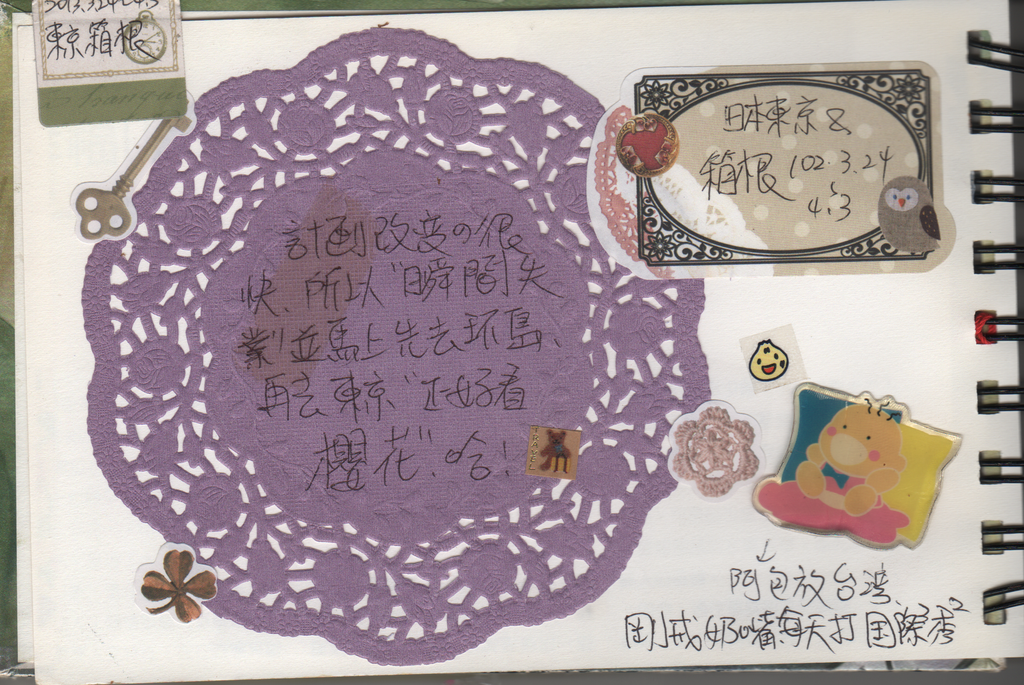 2013.3.24~4.3
東京箱根
日本東京&
箱根 102.3.24
~
4.3
計画改変の很
快、所以"瞬間失
業"並馬上先去环島、
再去東京"正好看
櫻花"、哈!
TRAVEL
↓
阿包放台湾、
剛戒奶嘴每天打国際秀²